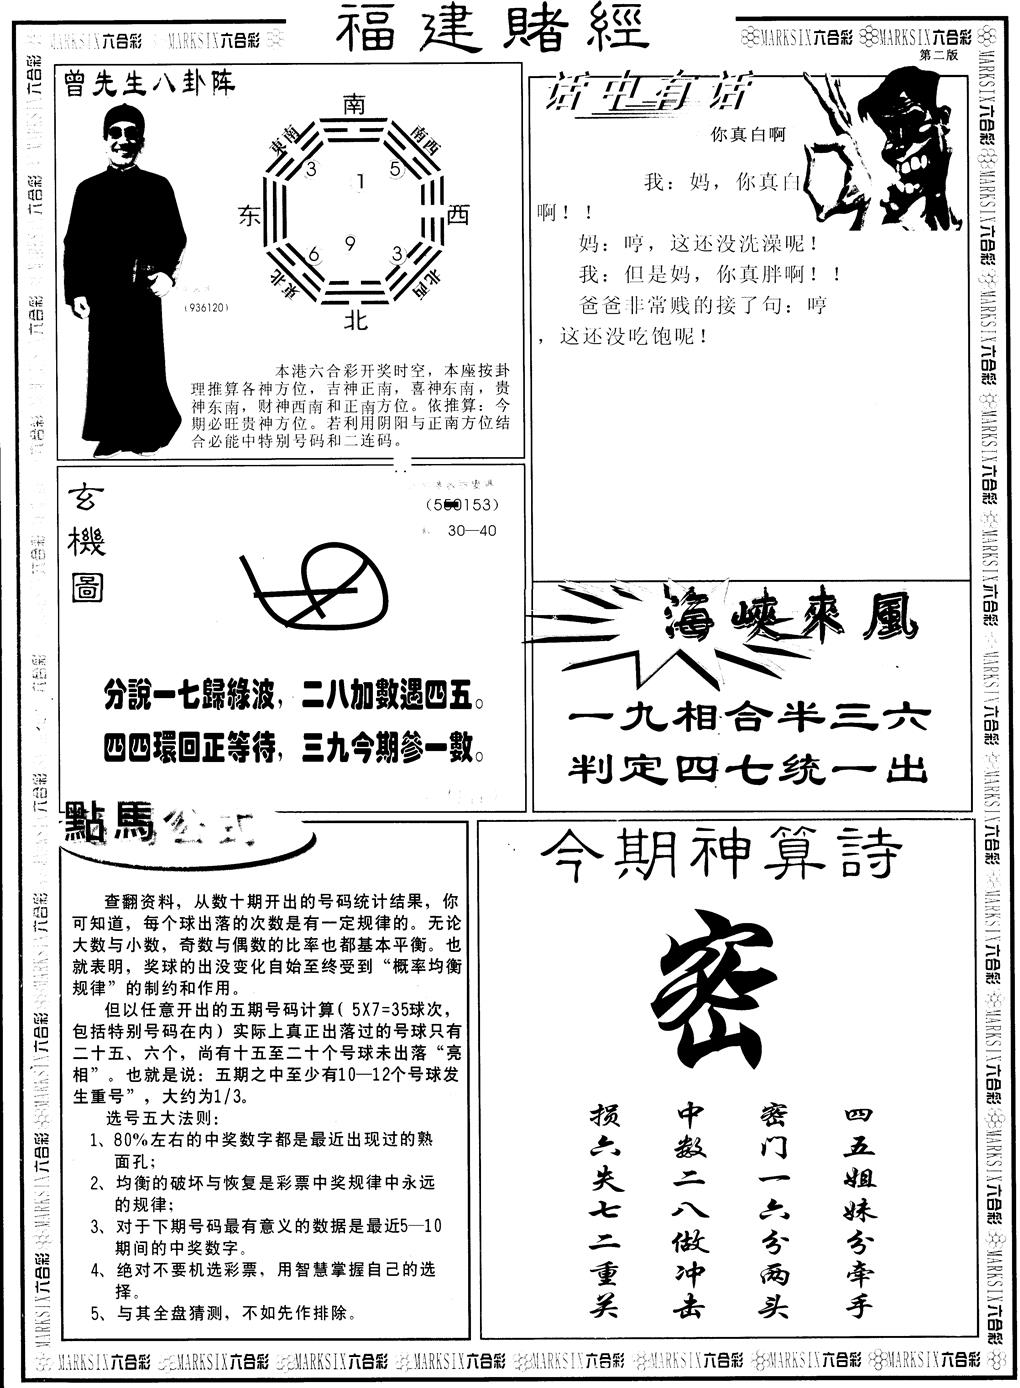 福建賭經
MARKSIX六合彩 MARKSIX六合彩
MARKSIX六合彩 MARKSIX六合彩
第二版
曾先生八卦阵
南
東南
南西
3
5
1
东
西
9
6
3
東北
北西
北
(936120)
本港六合彩开奖时空，本座按卦
理推算各神方位，吉神正南，喜神东南，贵
神东南，财神西南和正南方位。依推算：今
期必旺贵神方位。若利用阴阳与正南方位结
合必能中特别号码和二连码。
话中有话
你真白啊
我：妈，你真白
啊！！
妈：哼，这还没洗澡呢！
我：但是妈，你真胖啊！！
爸爸非常贱的接了句：哼
，这还没吃饱呢！
玄機圖
30—40
分說一七歸綠波，二八加數遇四五。
四四環回正等待，三九今期參一數。
海峽來風
一九相合半三六
判定四七统一出
點馬公式
查翻资料，从数十期开出的号码统计结果，你
可知道，每个球出落的次数是有一定规律的。无论
大数与小数，奇数与偶数的比率也都基本平衡。也
就表明，奖球的出没变化自始至终受到“概率均衡
规律”的制约和作用。
但以任意开出的五期号码计算( 5X7=35球次，
包括特别号码在内）实际上真正出落过的号球只有
二十五、六个，尚有十五至二十个号球未出落“亮
相”。也就是说：五期之中至少有10—12个号球发
生重号”，大约为1/3。
选号五大法则：
1、80%左右的中奖数字都是最近出现过的熟
面孔；
2、均衡的破坏与恢复是彩票中奖规律中永远
的规律；
3、对于下期号码最有意义的数据是最近5—10
期间的中奖数字。
4、绝对不要机选彩票，用智慧掌握自己的选
择。
5、与其全盘猜测，不如先作排除。
今期神算詩
密
四五姐妹分牵手
密门一六分两头
中数二八做冲击
损六失七二重关
MARKSIX六合彩 MARKSIX六合彩 MARKSIX六合彩 MARKSIX六合彩 MARKSIX六合彩 MARKSIX六合彩 MARKSIX六合彩 MARKSIX六合彩